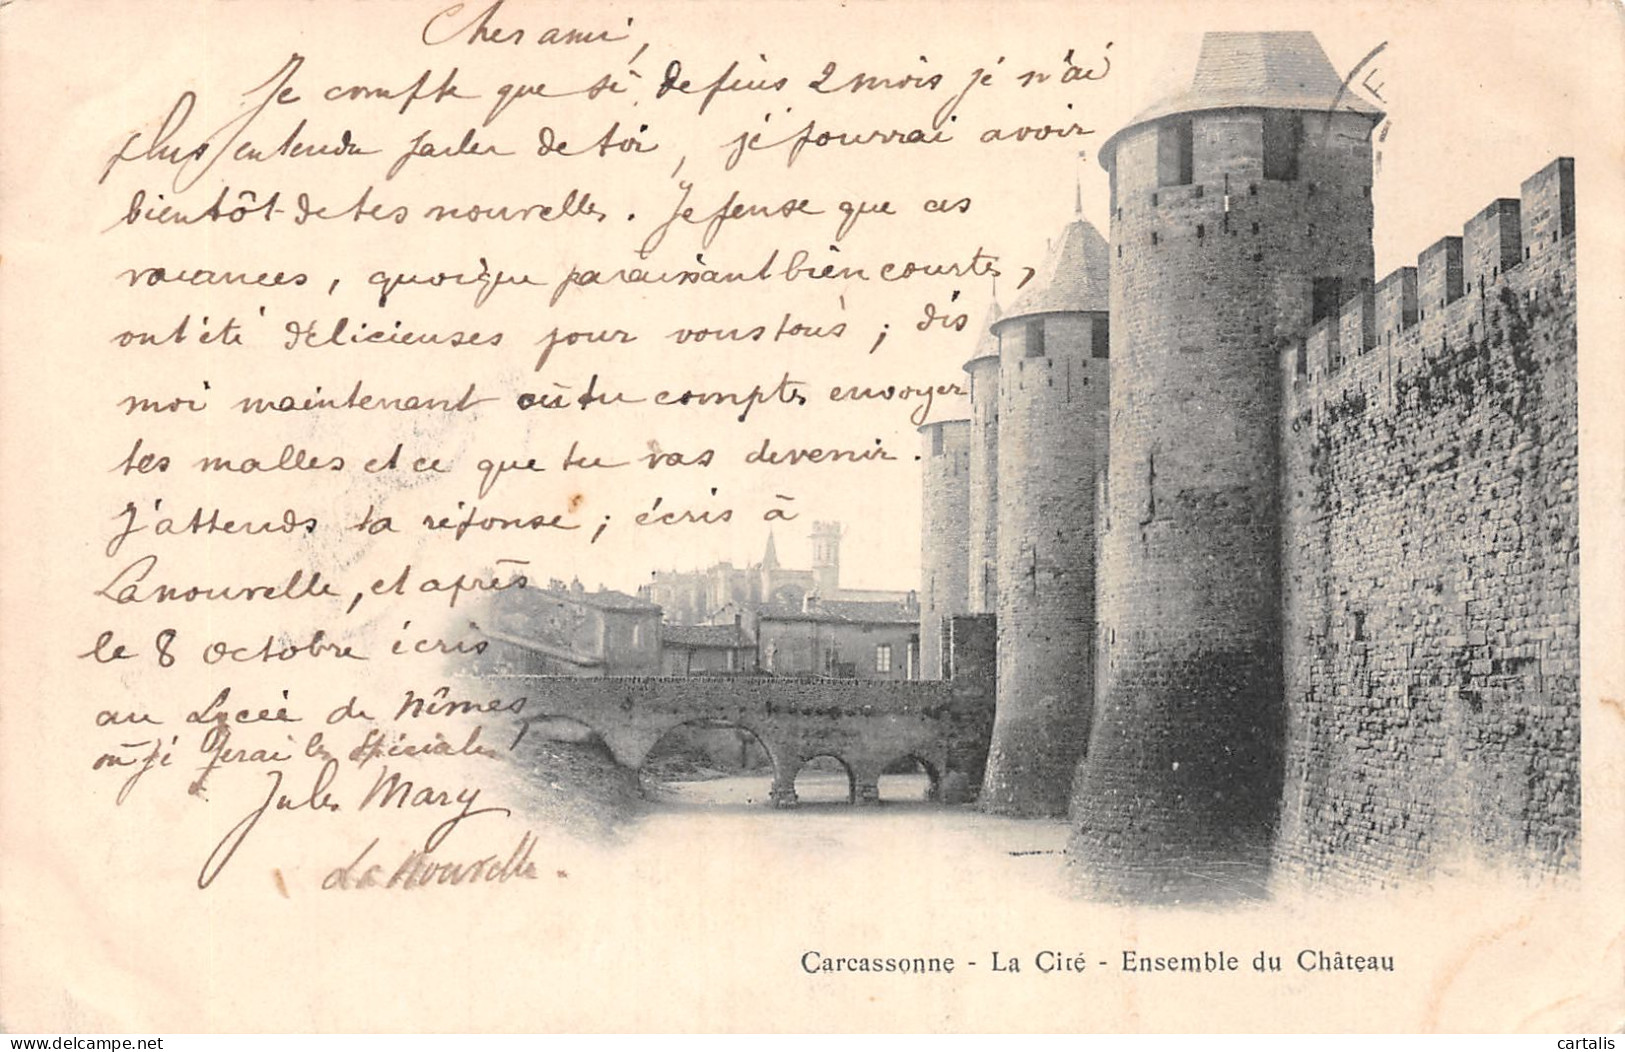 Cher ami,
Je compte que si depuis 2 mois je n'ai
plus entendu parler de toi, je pourrai avoir
bientôt de tes nouvelles. Je pense que ces
vacances, quoique paraissant bien courtes,
ont été délicieuses pour vous tous ; dis
moi maintenant où tu comptes envoyer
tes malles et ce que tu vas devenir.
J'attends ta réponse ; écris à
Lanouvelle, et après
le 8 octobre écris
au Lycée de Nîmes
où je ferai les Spéciales,
Jules Mary
La Nouvelle.
Carcassonne - La Cité - Ensemble du Château
delcampe.net
cartalis